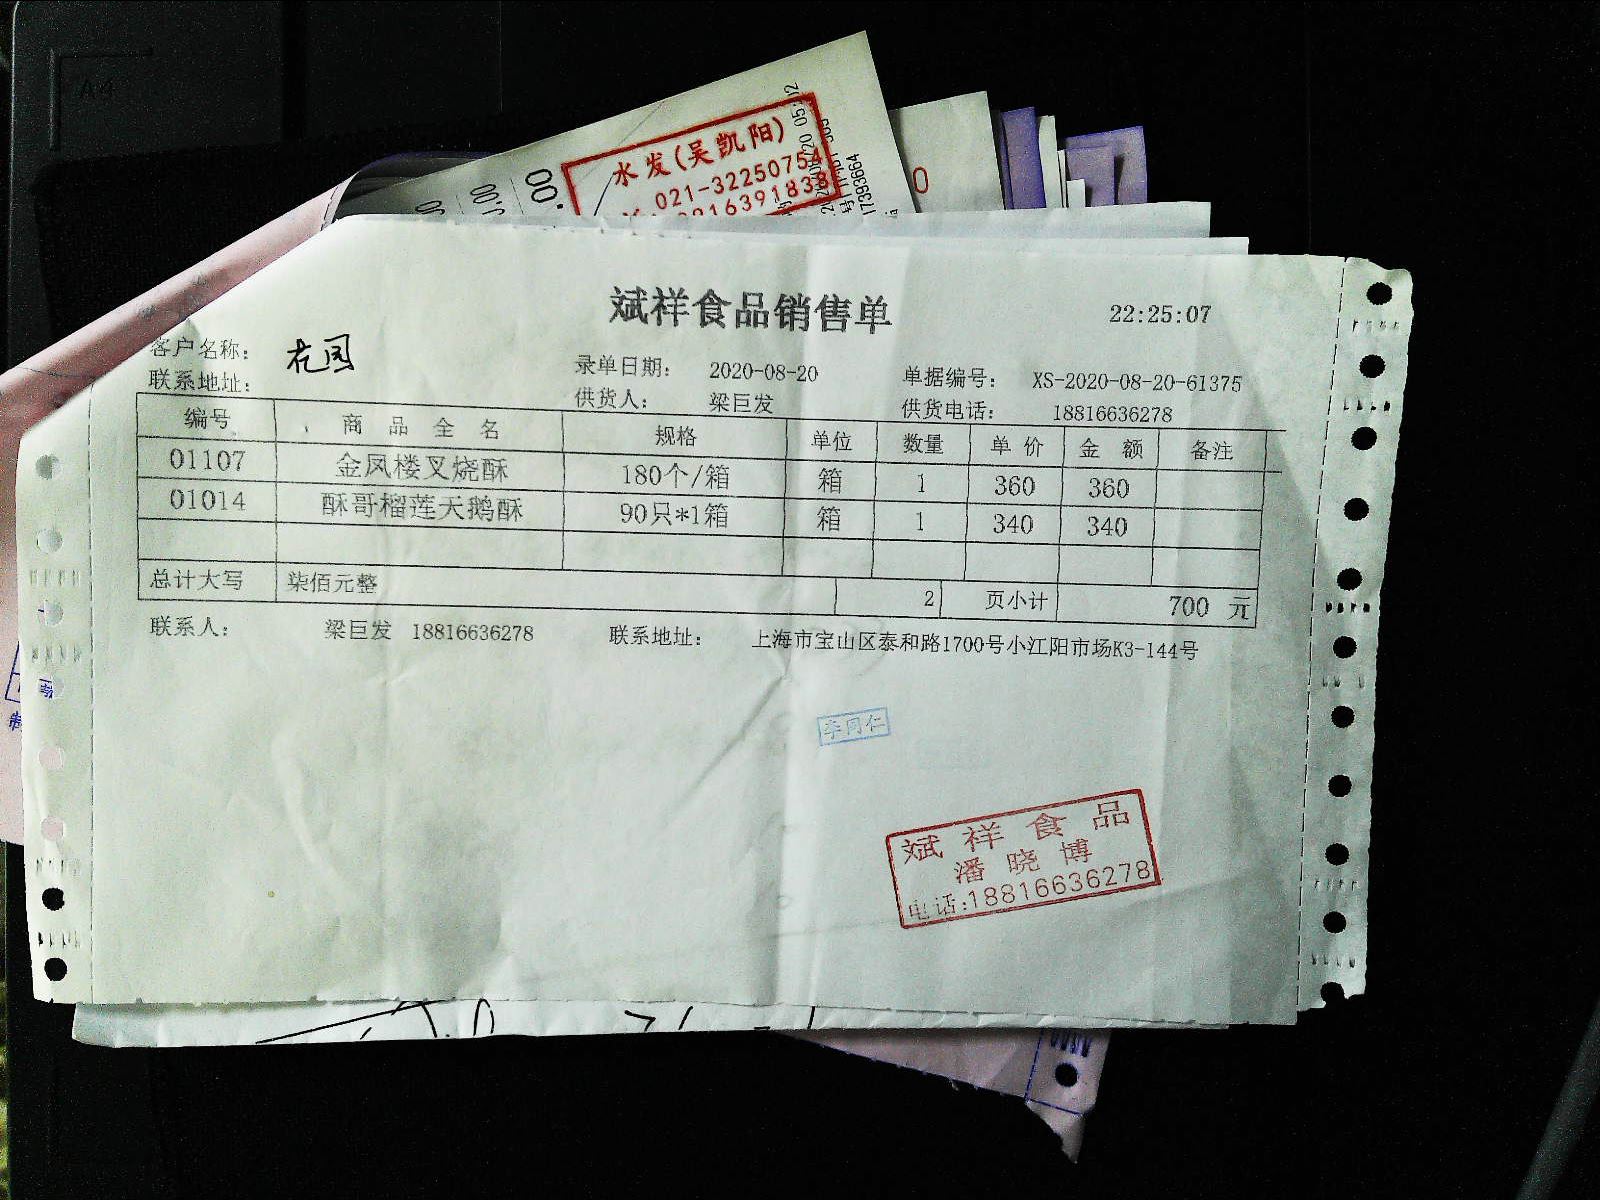 水发(吴凯阳)
021-32250754
斌祥食品销售单
22:25:07
客户名称: 花园
录单日期: 2020-08-20 单据编号: XS-2020-08-20-61375
联系地址: 供货人: 梁巨发 供货电话: 18816636278
编号 商品全名 规格 单位 数量 单价 金额 备注
01107 金凤楼叉烧酥 180个/箱 箱 1 360 360
01014 酥哥榴莲天鹅酥 90只*1箱 箱 1 340 340
总计大写 柒佰元整 2 页小计 700 元
联系人: 梁巨发 18816636278 联系地址: 上海市宝山区泰和路1700号小江阳市场K3-144号
李同仁
斌祥食品
潘晓博
电话:18816636278